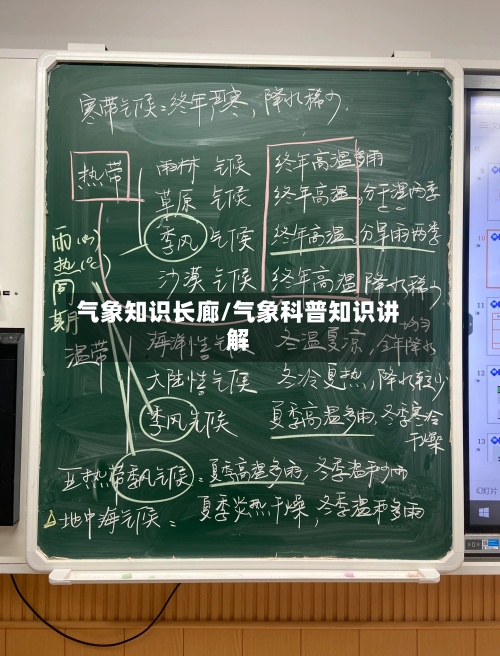 寒带气候：终年严寒，降水稀少.
热带
雨林 气候 终年高温多雨
草原 气候 终年高温，分干湿两季
季风 气候 终年高温，分旱雨两季
沙漠 气候 终年高温 降水稀少
雨(mm)
热(℃)
同
期
气象知识长廊/气象科普知识讲
解
温带
海洋性气候 冬温夏凉，全年降水
均匀
大陆性气候 冬冷夏热，降水较少
季风气候 夏季高温多雨，冬季寒冷
干燥
亚热带季风气候：夏季高温多雨，冬季温和少雨
地中海气候：夏季炎热干燥，冬季温和多雨
9
10
11
12
13
幻灯片